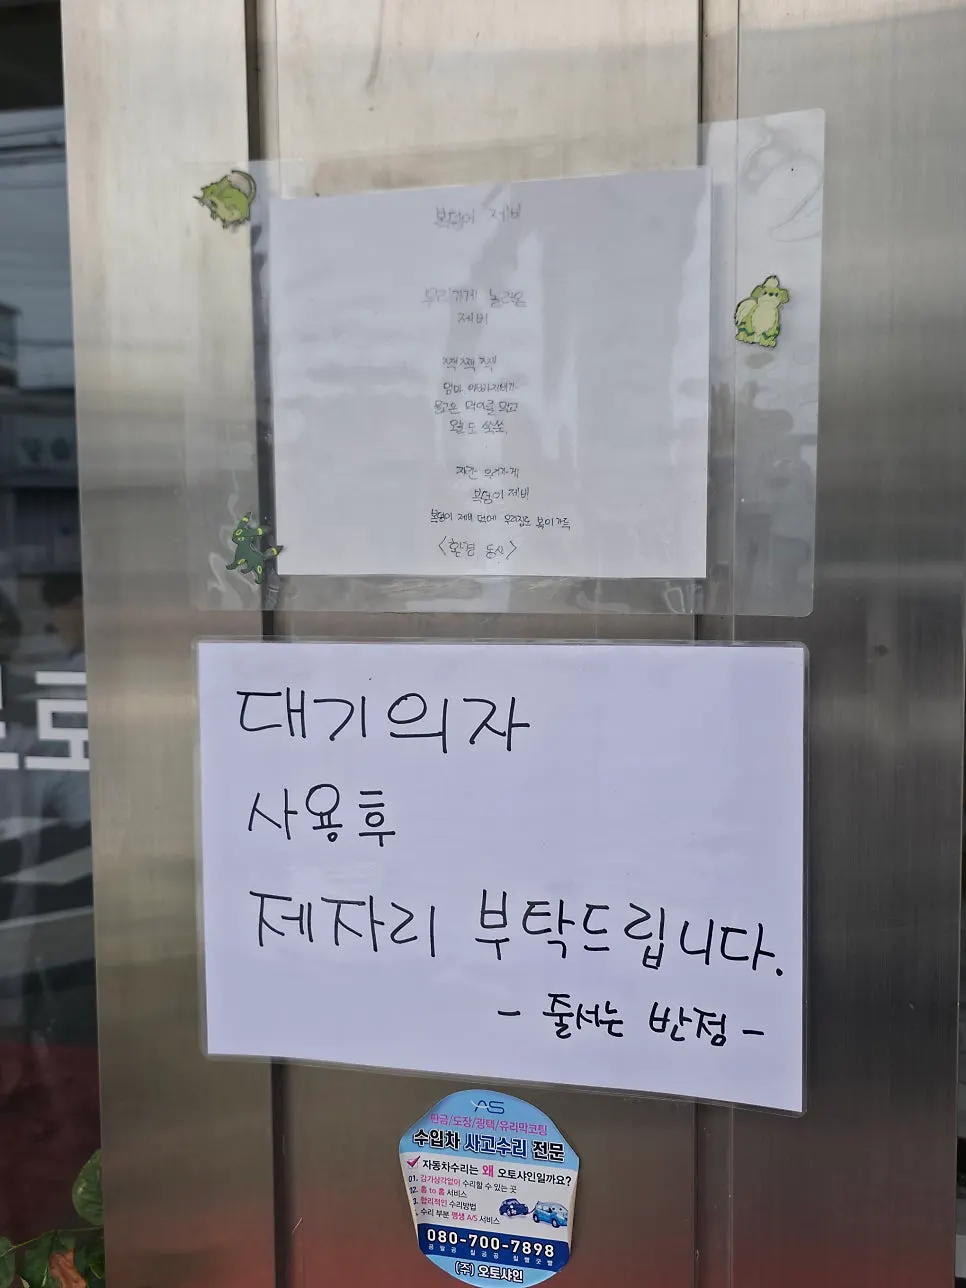 복덩이 제비
우리가게 놀러온
제비
짹짹 짹
엄마 아빠제비가
먹이를 먹고
쑥쑥.
복덩이 제비
복덩이 제비 덕에 우리집도 복이 가득
<환경 동시>
대기의자
사용후
제자리 부탁드립니다.
- 줄서는 반점 -
판금/도장/광택/유리막코팅
수입차 사고수리 전문
자동차수리는 왜 오토샤인일까요?
01. 감가상각없이 수리할 수 있는 곳
02. 홈 to 홈 서비스
3. 합리적인 수리방법
수리 부분 평생 A/S 서비스
080-700-7898
공팔공 칠공공 칠팔구팔
(주) 오토샤인